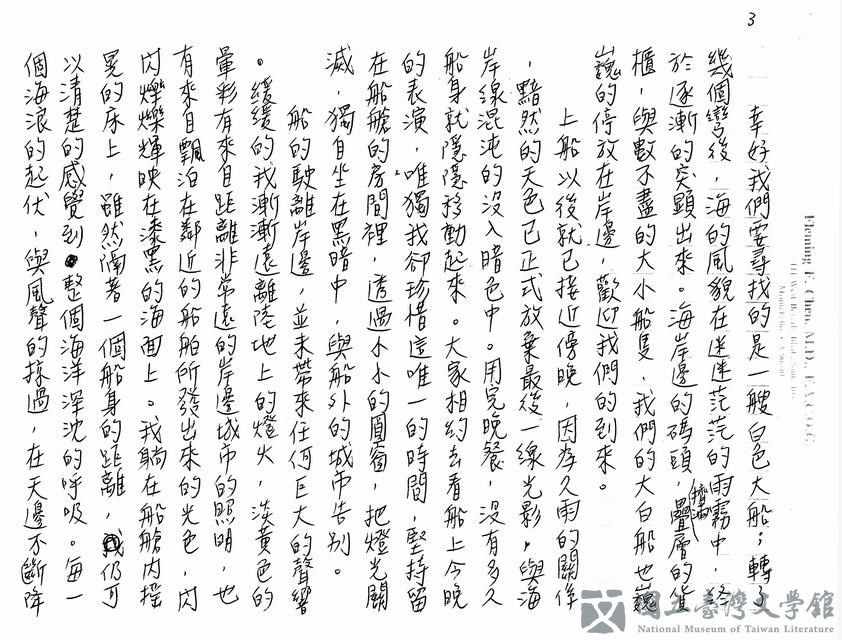 3
幸好我們要尋找的是一艘白色大船；轉了
幾個彎後，海的風貌在迷迷茫茫的雨霧中，終
於逐漸的突顯出來。海岸邊的碼頭，擠滿疊層的貨
櫃，與數不盡的大小船隻，我們的大白船也巍
巍的停放在岸邊，歡迎我們的到來。
上船以後就已接近傍晚，因為久雨的關係
，黯然的天色已正式放棄最後一線光影，與海
岸線混沌的沒入暗色中。用完晚餐，沒有多久
船身就隱隱移動起來。大家相約去看船上今晚
的表演，唯獨我卻珍惜這唯一的時間，堅持留
在船艙的房間裡，透過小小的圓窗，把燈光關
滅，獨自坐在黑暗中，與船外的城市告別。
船的駛離岸邊，並未帶來任何巨大的聲響
。緩緩的我漸漸遠離陸地上的燈火，淡黃色的
暈彩有來自距離非常遠的岸邊城市的照明，也
有來自飄泊在鄰近的船舶所發出來的光色，閃
閃爍爍輝映在漆黑的海面上。我躺在船艙內搖
晃的床上，雖然隔著一個船身的距離，我仍可
以清楚的感覺到整個海洋深沈的呼吸。每一
個海浪的起伏，與風聲的掠過，在天邊不斷降
Fleming F. Chen, M.D., F.A.C.O.G.
國立臺灣文學館
National Museum of Taiwan Literature